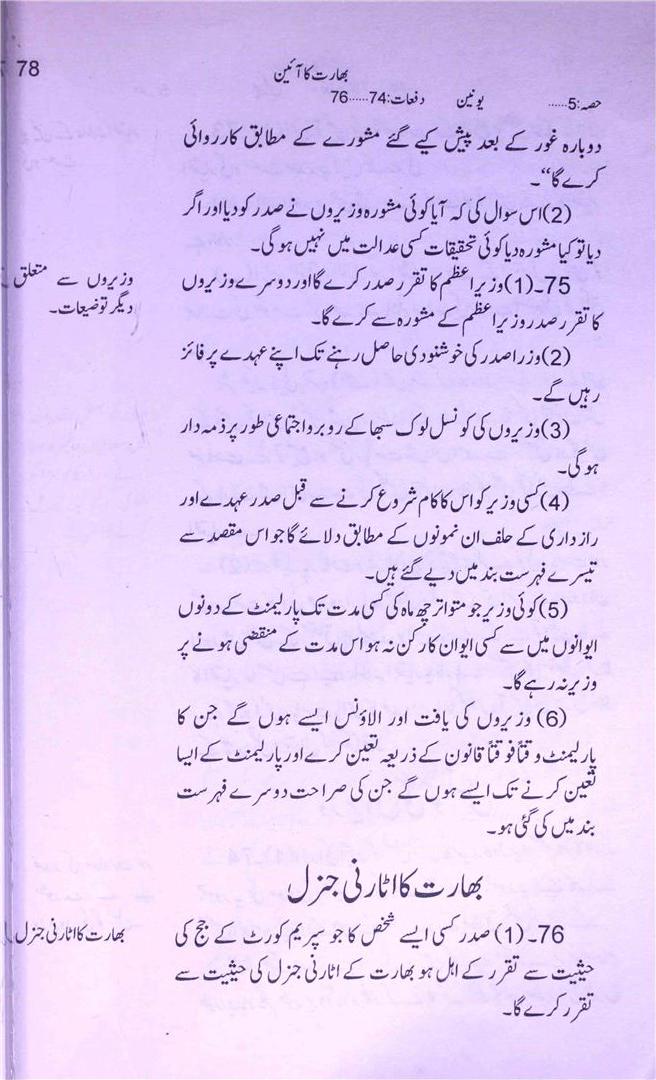 78
بھارت کا آئین
حصہ:5...... یونین دفعات:74......76
دوبارہ غور کے بعد پیش کیے گئے مشورے کے مطابق کارروائی
کرے گا“۔
(2) اس سوال کی کہ آیا کوئی مشورہ وزیروں نے صدر کو دیا اور اگر
دیا تو کیا مشورہ دیا کوئی تحقیقات کسی عدالت میں نہیں ہوگی۔
وزیروں سے متعلق
دیگر توضیعات۔
75۔(1) وزیر اعظم کا تقرر صدر کرے گا اور دوسرے وزیروں
کا تقرر صدر وزیر اعظم کے مشورہ سے کرے گا۔
(2) وزرا صدر کی خوشنودی حاصل رہنے تک اپنے عہدے پر فائز
رہیں گے۔
(3) وزیروں کی کونسل لوک سبھا کے روبرو اجتماعی طور پر ذمہ دار
ہوگی۔
(4) کسی وزیر کو اس کا کام شروع کرنے سے قبل صدر عہدے اور
رازداری کے حلف ان نمونوں کے مطابق دلائے گا جو اس مقصد سے
تیسرے فہرست بند میں دیے گئے ہیں۔
(5) کوئی وزیر جو متواتر چھ ماہ کی کسی مدت تک پارلیمنٹ کے دونوں
ایوانوں میں سے کسی ایوان کا رکن نہ ہو اس مدت کے منقضی ہونے پر
وزیر نہ رہے گا۔
(6) وزیروں کی یافت اور الاؤنس ایسے ہوں گے جن کا
پارلیمنٹ وقتاً فوقتاً قانون کے ذریعہ تعین کرے اور پارلیمنٹ کے ایسا
تعین کرنے تک ایسے ہوں گے جن کی صراحت دوسرے فہرست
بند میں کی گئی ہو۔
بھارت کا اٹارنی جنرل
بھارت کا اٹارنی جنرل
76۔(1) صدر کسی ایسے شخص کا جو سپریم کورٹ کے جج کی
حیثیت سے تقرر کے اہل ہو بھارت کے اٹارنی جنرل کی حیثیت سے
تقرر کرے گا۔